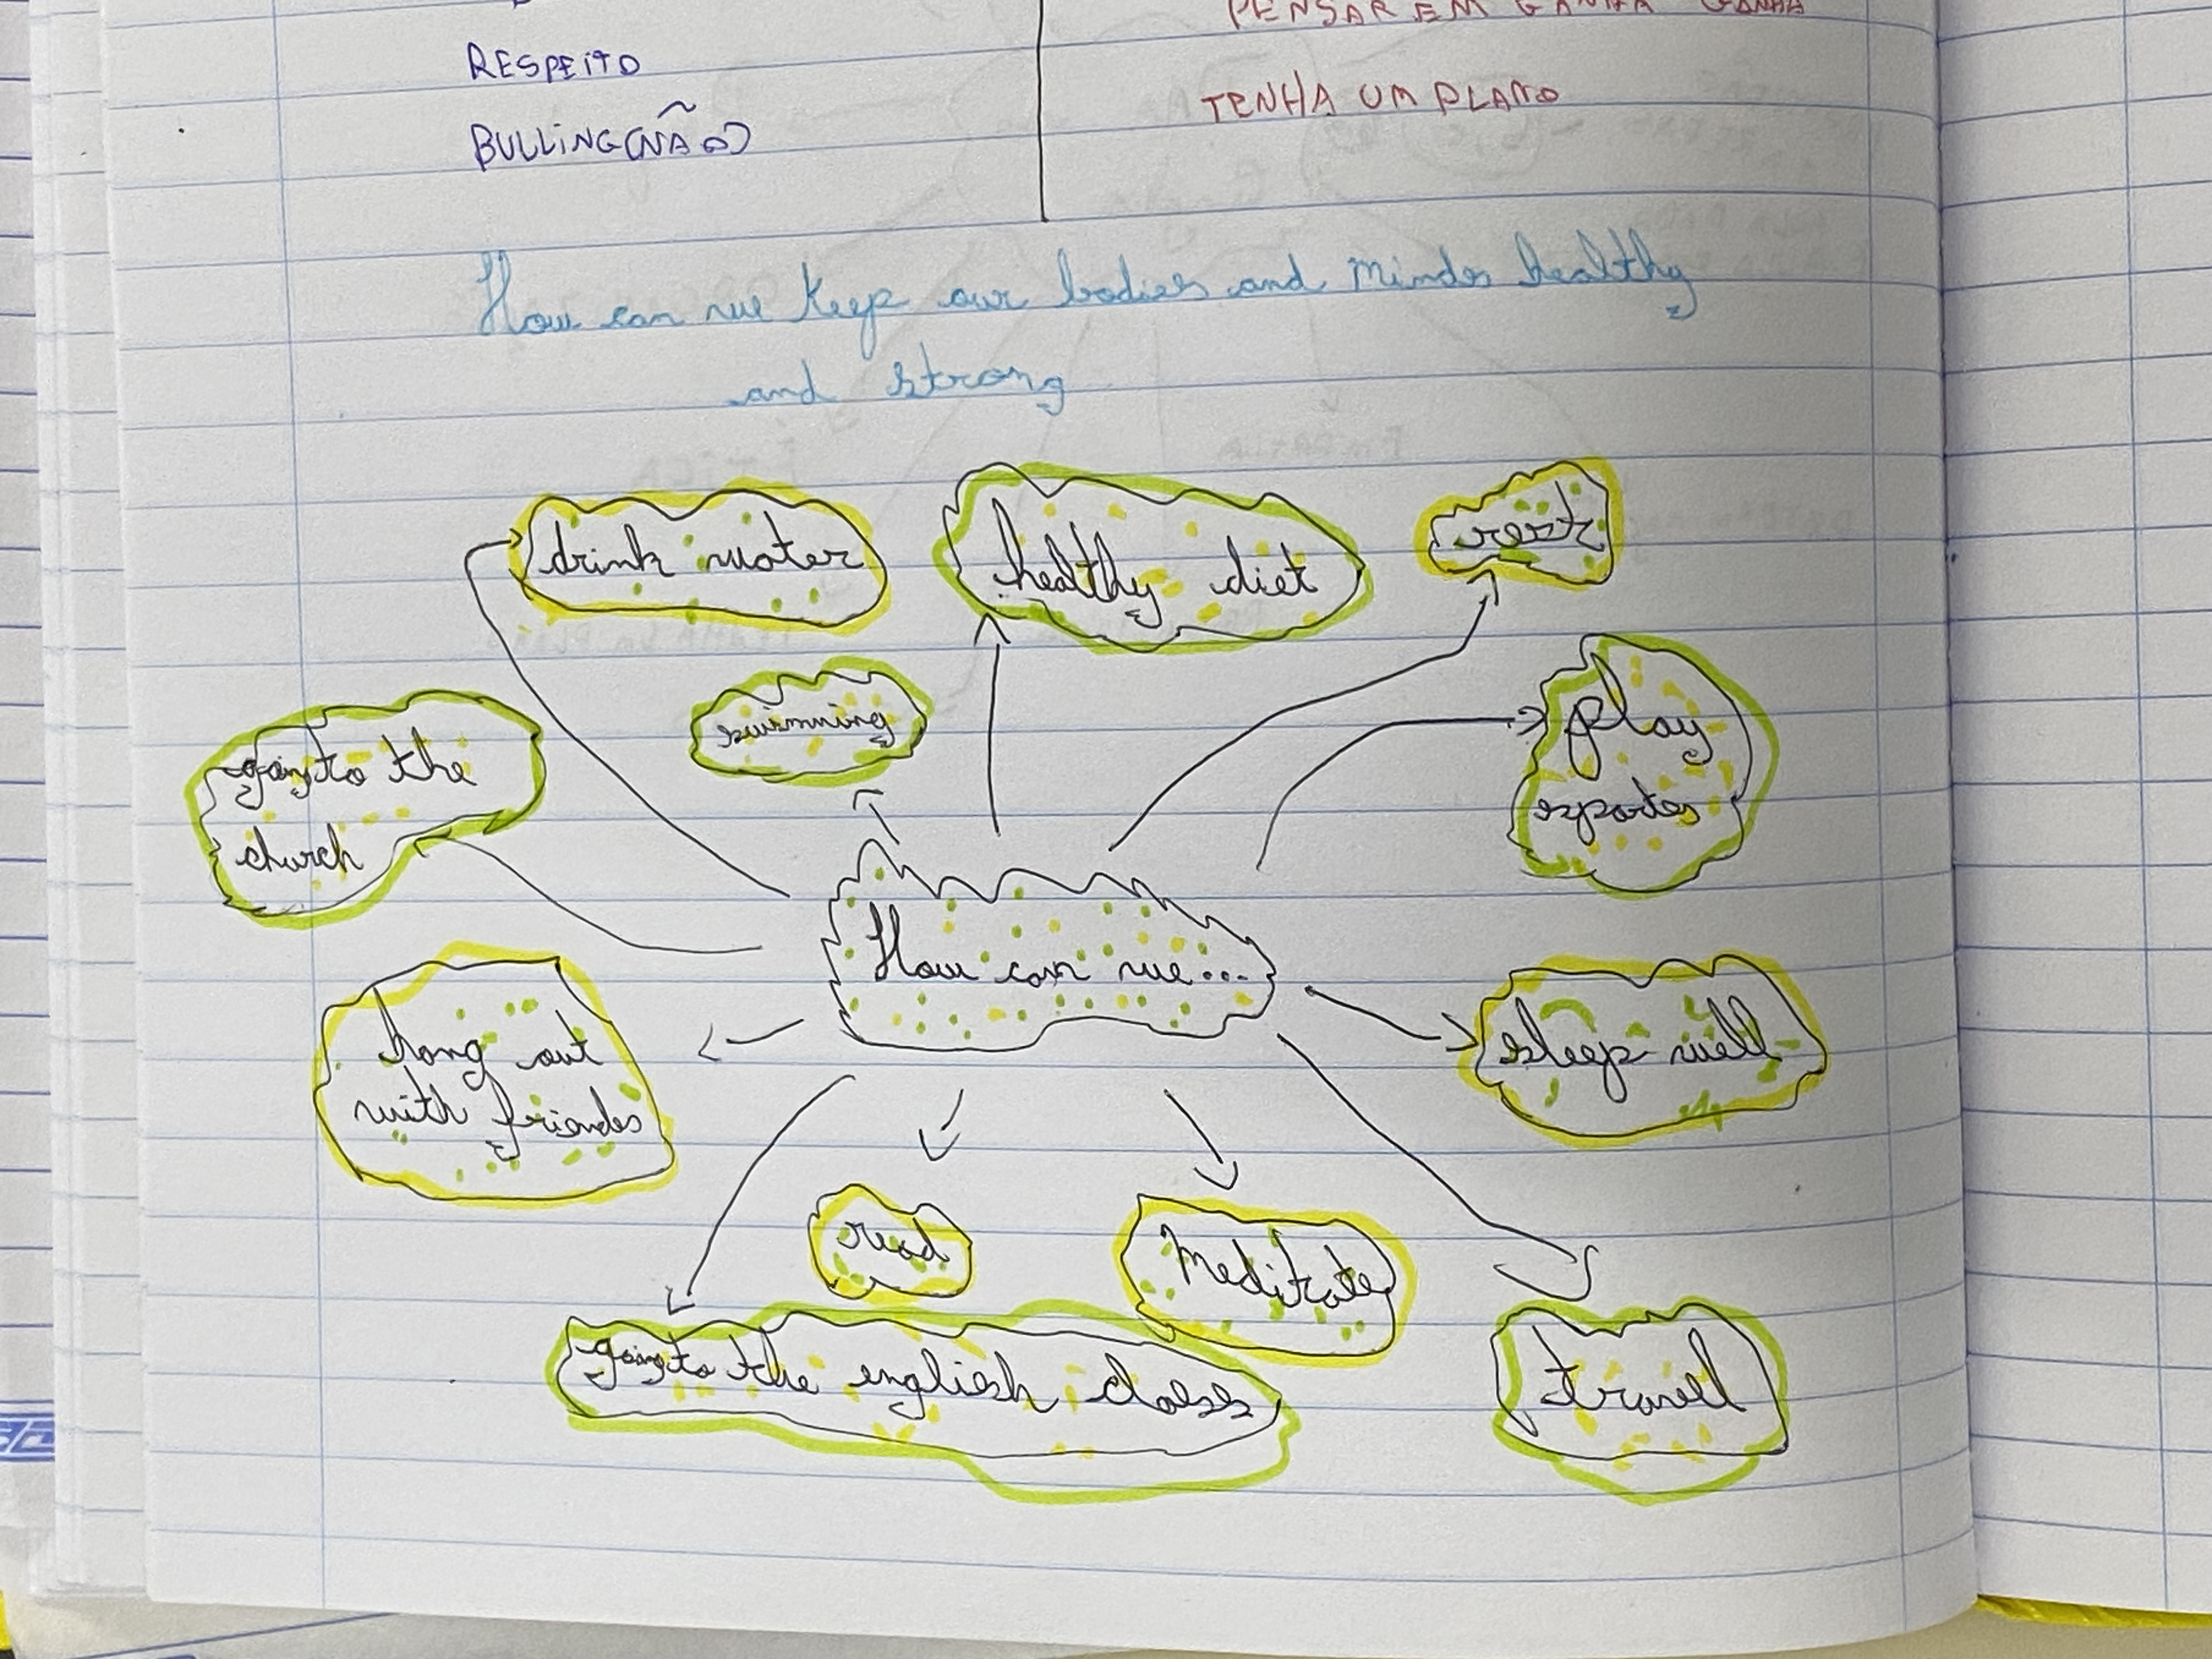 PENSAR EM GANHA GANHA
RESPEITO
TENHA UM PLANO
BULLING(NÃO)
How can we keep our bodies and minds healthy
and strong
drink water
healthy diet
rest
swimming
play
sportes
going to the
church
How can we...
hang out
with friends
sleep well
read
Meditate
going to the english class
travel